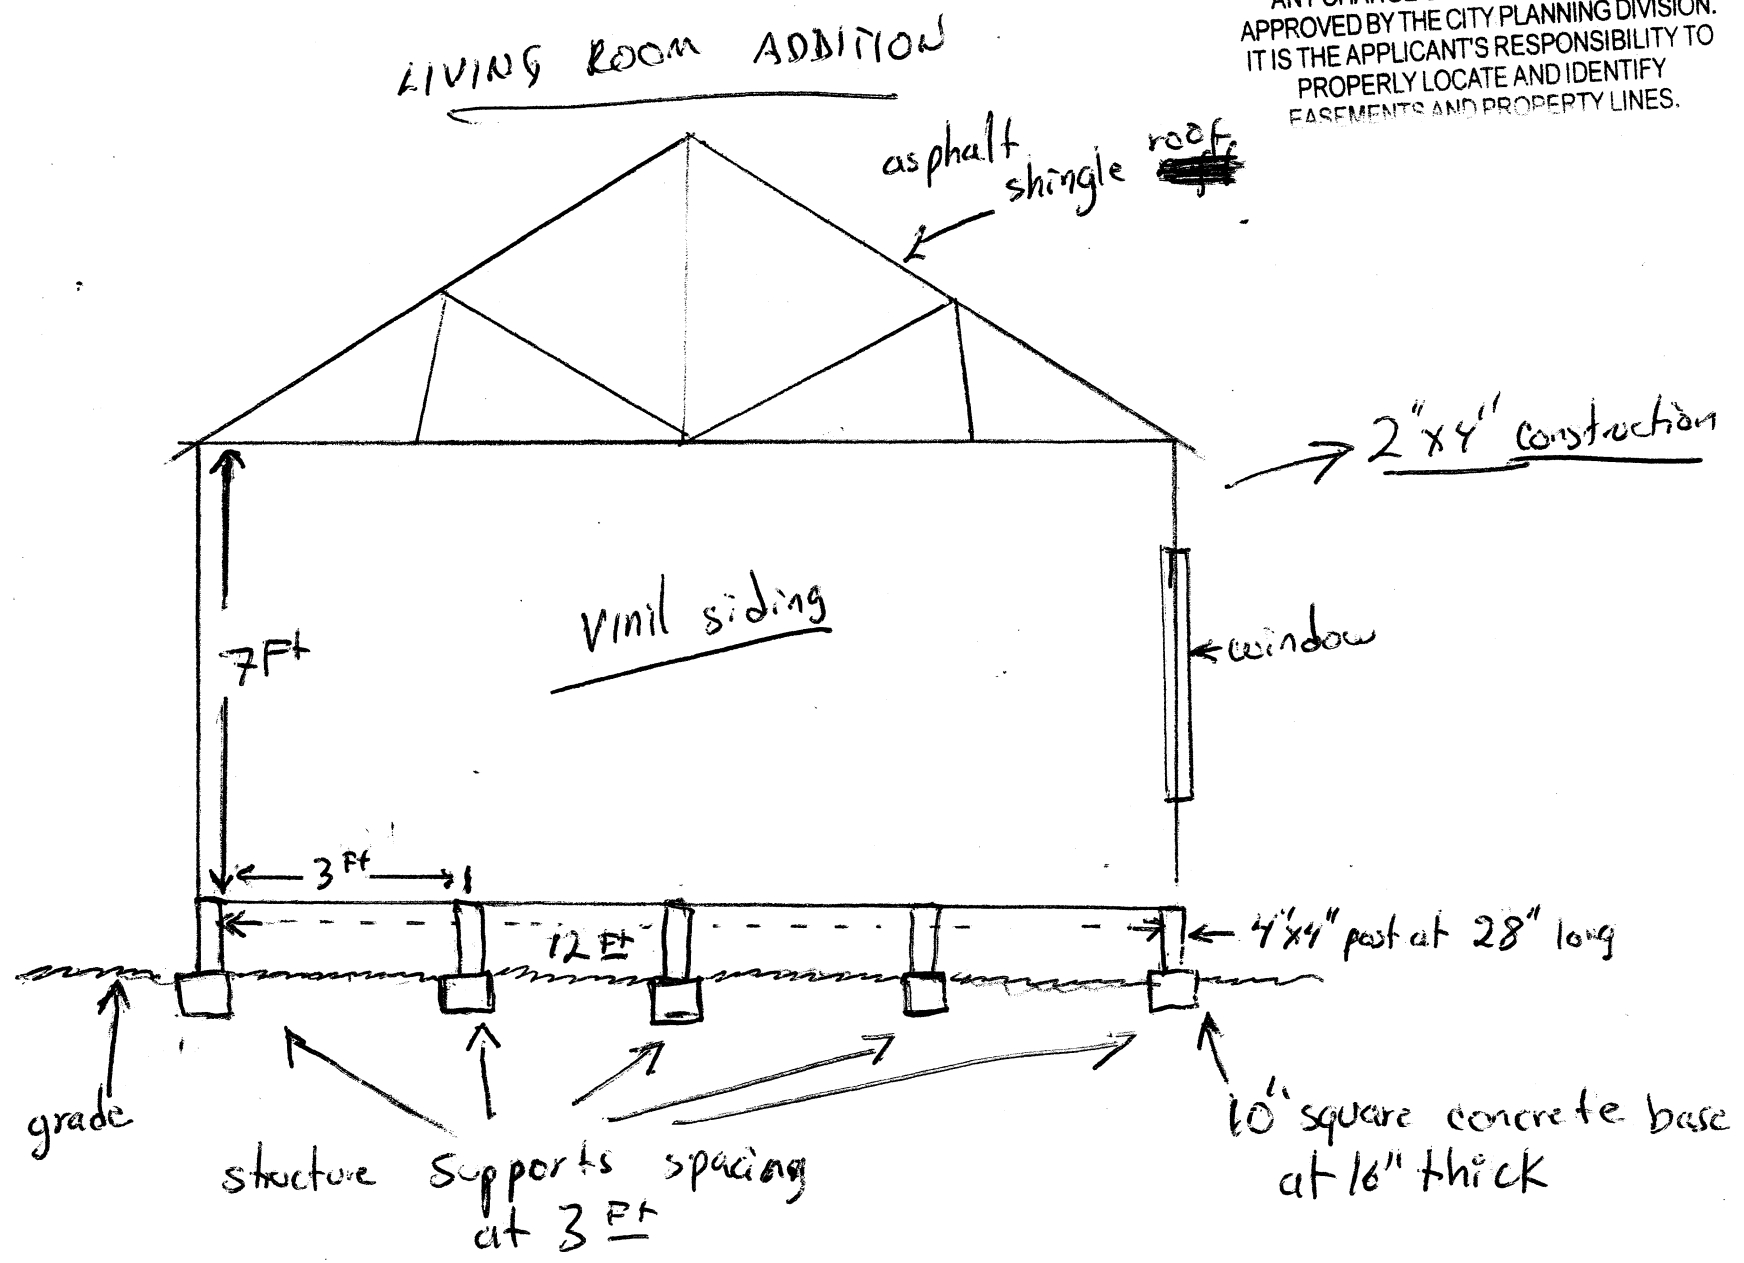 LIVING ROOM ADDITION
APPROVED BY THE CITY PLANNING DIVISION.
IT IS THE APPLICANT'S RESPONSIBILITY TO
PROPERLY LOCATE AND IDENTIFY
EASEMENTS AND PROPERTY LINES.
asphalt
shingle roof
2"x4" construction
vinil siding
7 Ft
window
3 Ft
12 Ft
4"x4" post at 28" long
grade
structure supports spacing
at 3 Ft
10" square concrete base
at 16" thick